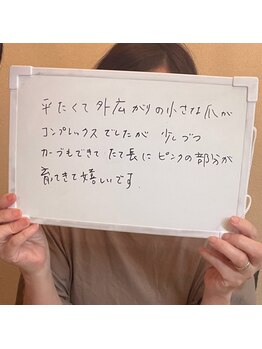 平たくて外広がりの小さな爪が
コンプレックスでしたが 少しづつ
カーブもできて たて長に ピンクの部分が
育ってきて嬉しいです